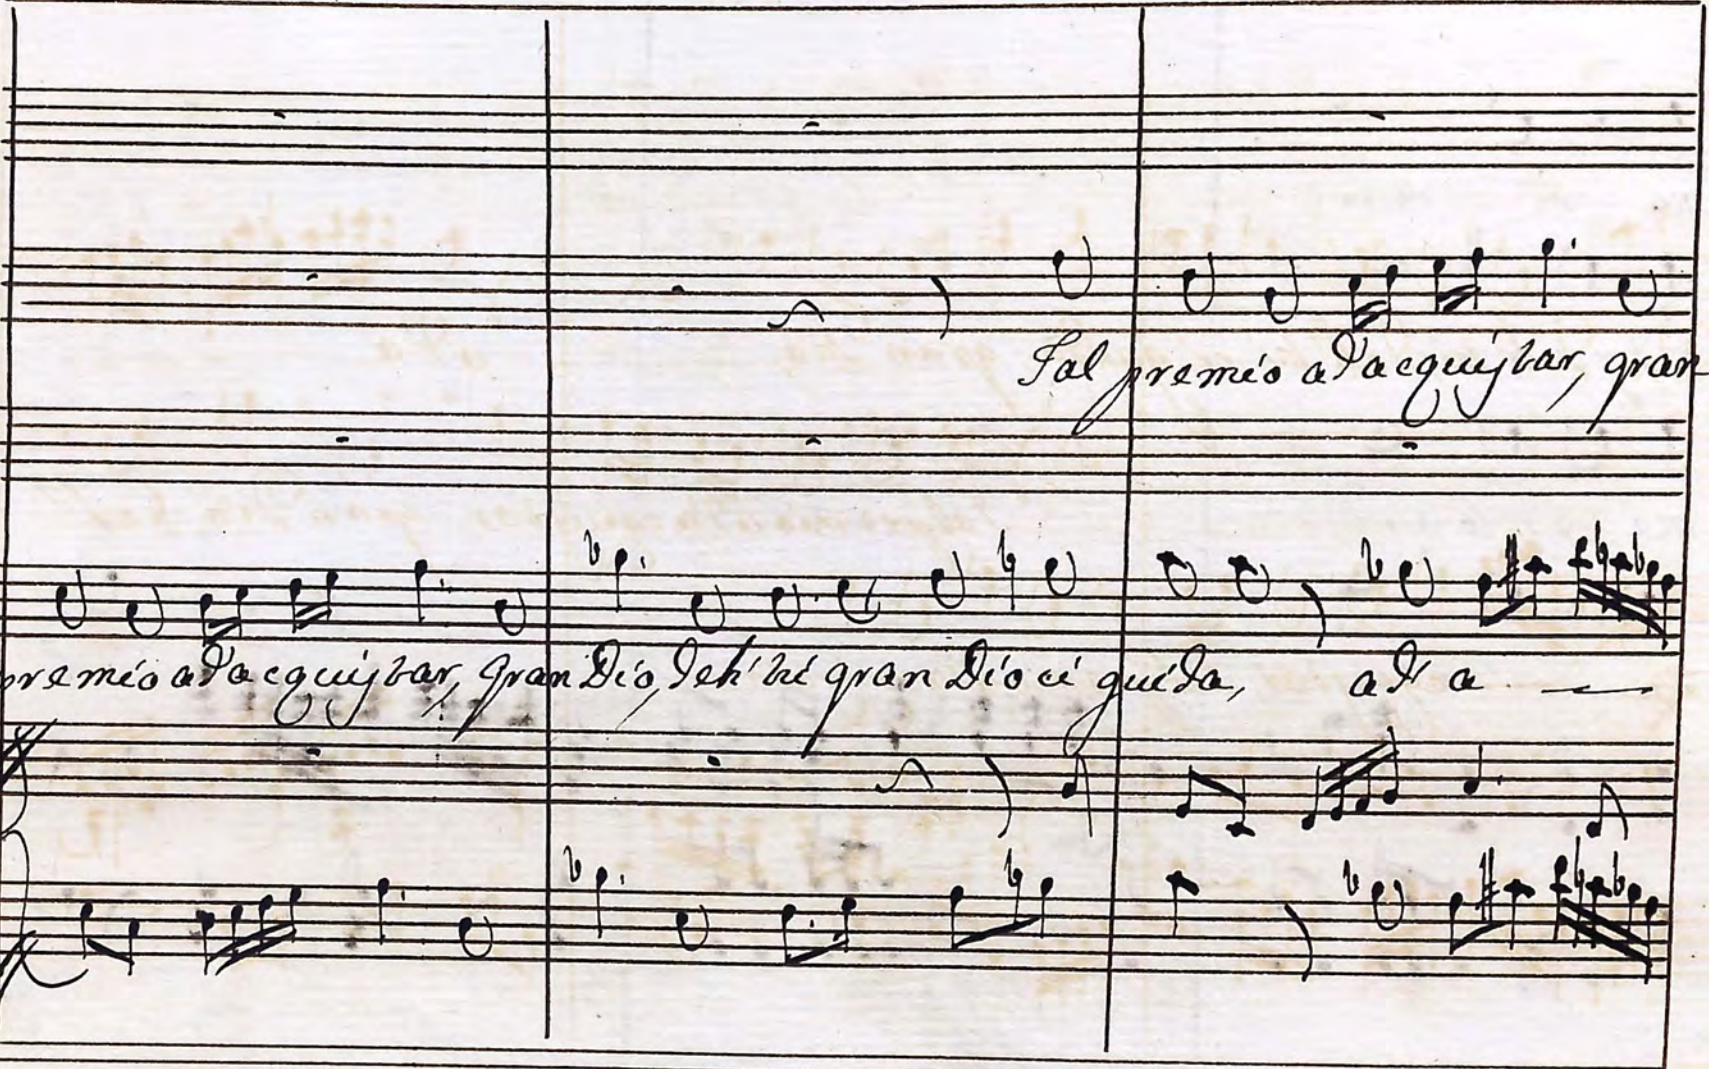 Tal premio ad'acquistar, gran
premio ad'acquistar, gran Dio, deh' tú gran Dio ci guida, ad' a